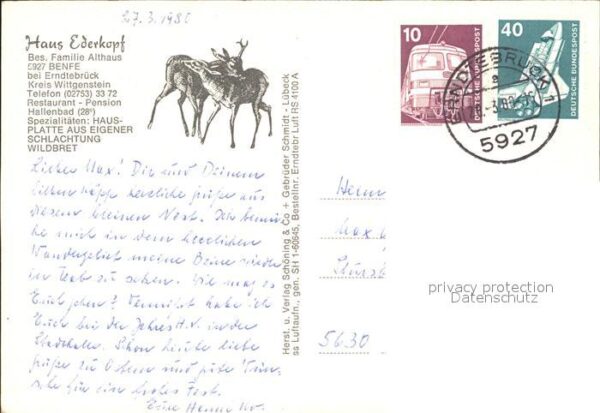 27.3.1980
Haus Ederkopf
Bes. Familie Althaus
5927 BENFE
bei Erndtebrück
Kreis Wittgenstein
Telefon (02753) 33 72
Restaurant - Pension
Hallenbad (28°)
Spezialitäten: HAUS-
PLATTE AUS EIGENER
SCHLACHTUNG
WILDBRET
Lieber Max! Dir und Deinen
lieben herzliche Grüße aus
diesem kleinen Nest. Ich bemü-
he mich in dem herrlichen
Wandergebiet meine Beine wieder
in zu sehen. Wie mag es
Euch gehen? Vermißt habe ich
Euch bei der Jahres H.V. in der
Stadthalle. Schon heute liebe
Grüße zu Ostern und gute Wün-
sche für ein frohes Fest.
Eure
Herst. u. Verlag Schöning & Co + Gebrüder Schmidt - Lübeck
ss Luftaufn., gen. SH 1-60645, Bestellnr. Erndtebr Luft RS 4100 A
10
DEUTSCHE BUNDESPOST
40
DEUTSCHE BUNDESPOST
ERNDTEBRÜCK 1
a
5927
Herrn
Max
5630
privacy protection
Datenschutz